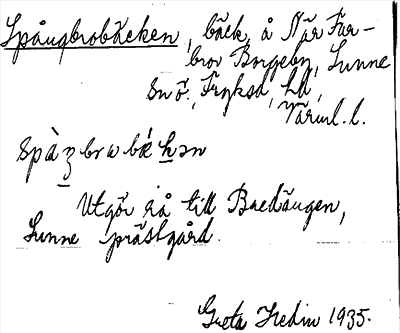 Spångbrobäcken, bäck, å När Får-
bron Borgeby, Sunne
sn ö. Fryksd. hd,
Värml. l.
Spàŋbrwbækən
Utgör rå till Backängen,
Sunne prästgård.
Greta Hedin 1935.